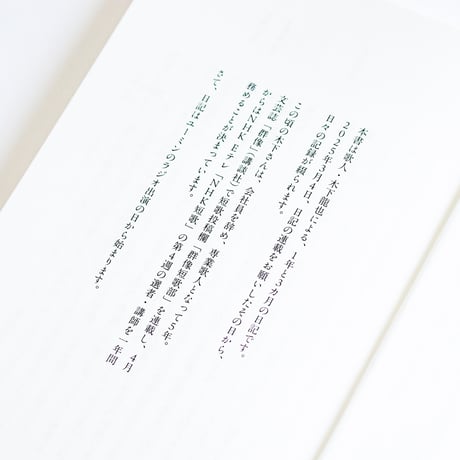 本書は歌人・木下龍也による、1年と3カ月の日記です。
2025年1月4日、日記の連載をお願いしたその日から、
日々の記録が綴られます。
この頃の木下さんは、会社員を辞め、専業歌人となって5年。
文芸誌「群像」（講談社）で短歌投稿欄「群像短歌部」を連載し、4月
からはNHK Eテレ「NHK短歌」の第4週の選者・講師を一年間
務めることが決まっています。
さて、日記はユーミンのラジオ出演の日から始まります。